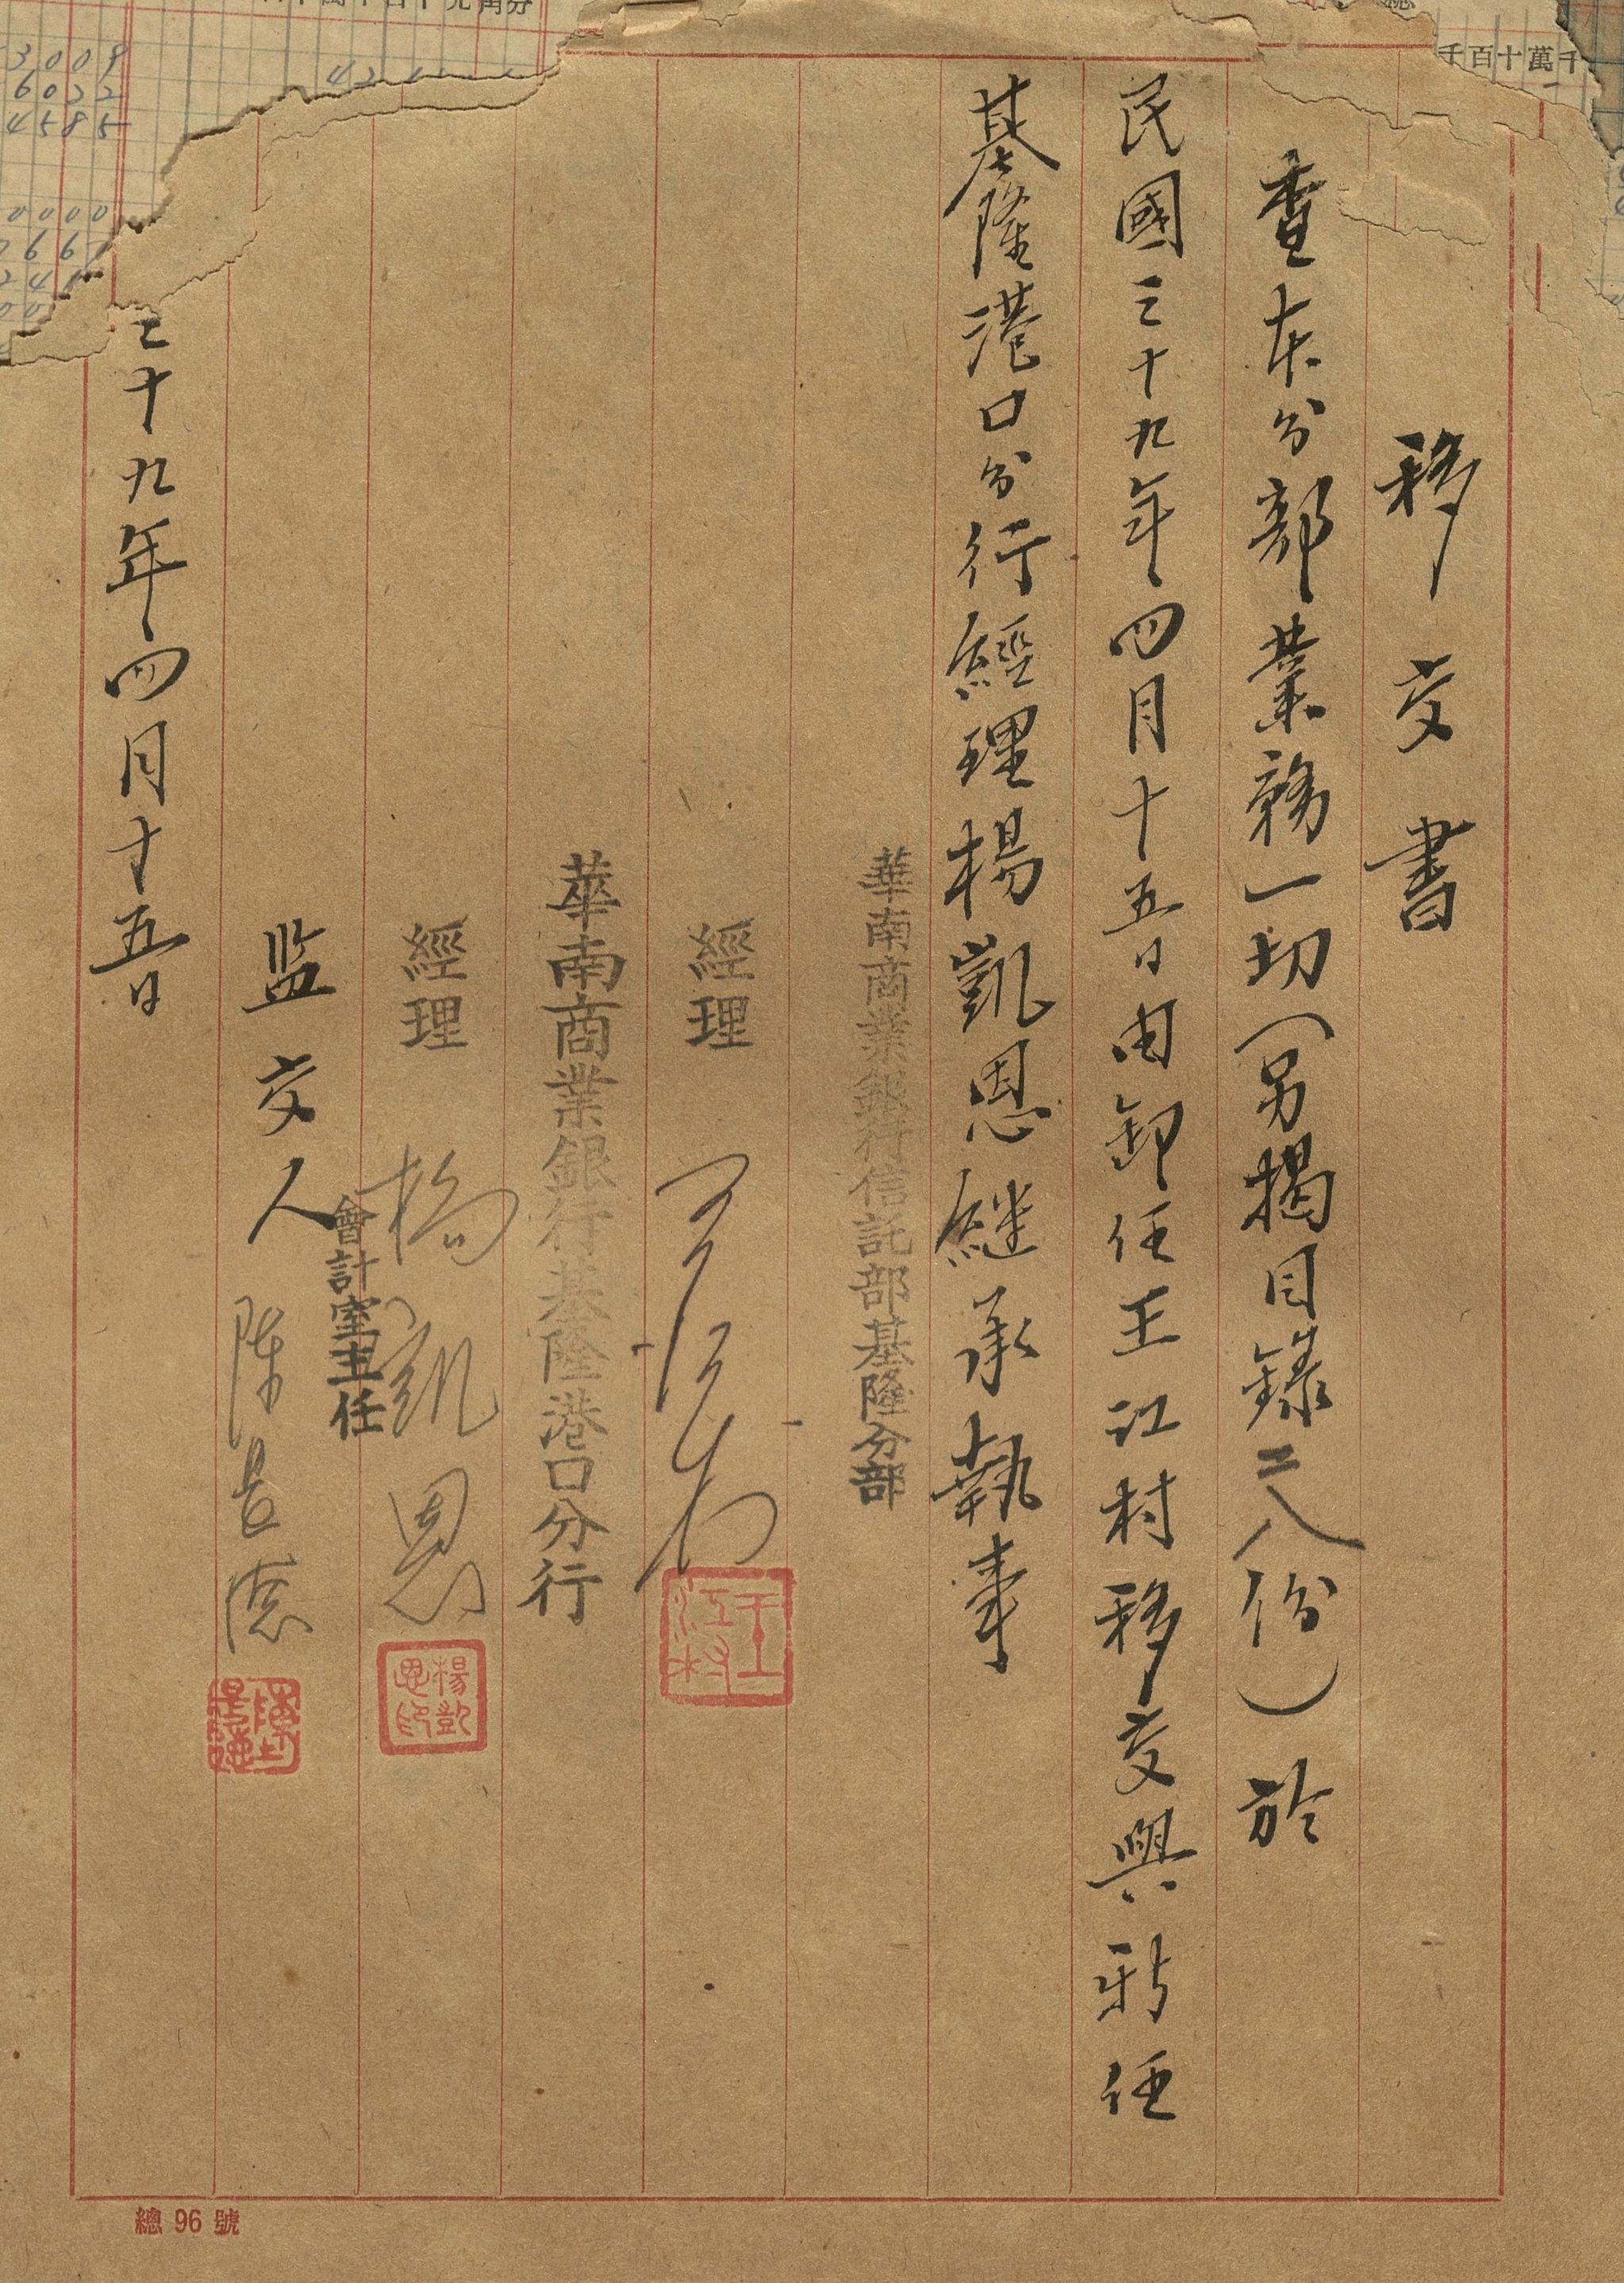 移交書
查本分部業務一切(另揭目錄二八份)於
民國三十九年四月十五日由卸任王江村移交與新任
基隆港口分行經理楊凱恩継承執事
華南商業銀行信託部基隆分部
經理
王江村
華南商業銀行基隆港口分行
經理 楊凱恩
楊凱恩印
會計室主任
监交人 陳
三十九年四月十五日
總 96 號
千百十萬千
3009
6022
4585